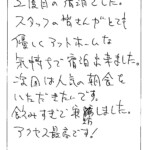 2度目の宿泊でした。
スタッフの皆さんがとても
優しくアットホームな
気持ちで宿泊出来ました。
次回は人気の朝食を
いただきたいです。
飲みすぎで寝坊しました。
アクセス最高です!